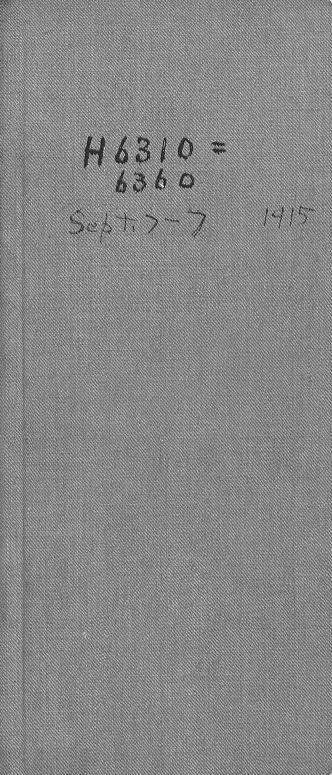 H6310=
6360
Sept. 7-7 1915